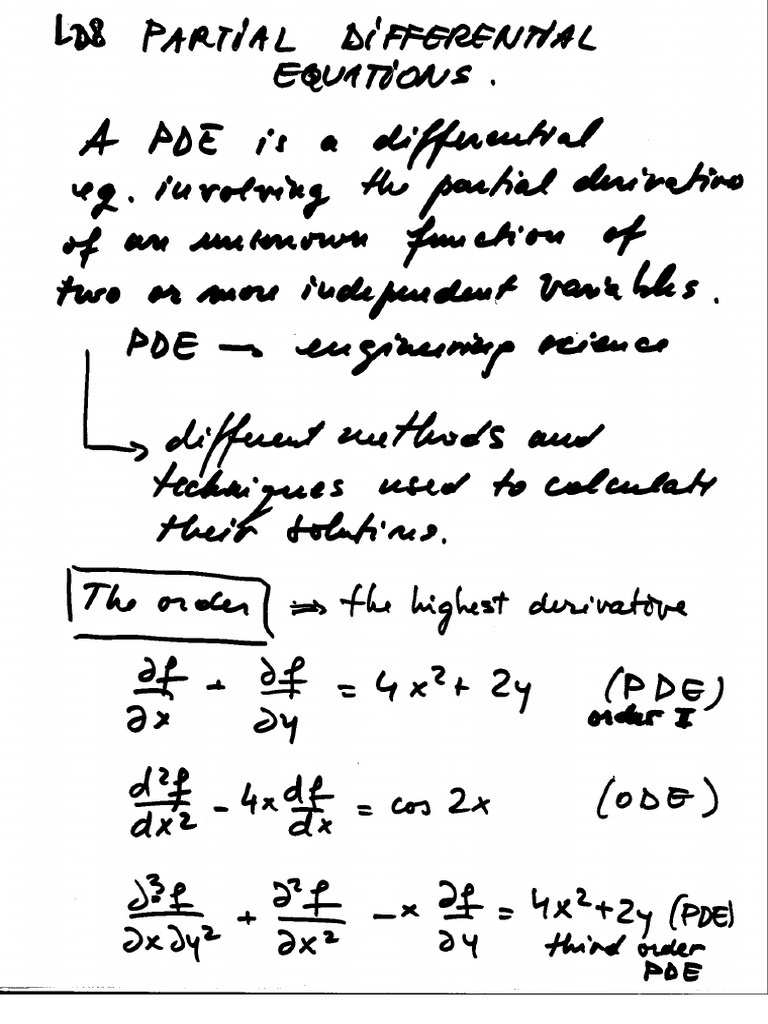 L08 PARTIAL DIFFERENTIAL
EQUATIONS.
A PDE is a differential
eq. involving the partial derivative
of an unknown function of
two or more independent variables.
PDE → engineering science
different methods and
techniques used to calculate
their solutions.
The order ⇒ the highest derivative
∂f/∂x + ∂f/∂y = 4x² + 2y (PDE)
order I
d²f/dx² - 4x df/dx = cos 2x (ODE)
∂³f/∂x∂y² + ∂²f/∂x² - x ∂f/∂y = 4x² + 2y (PDE)
third order
PDE